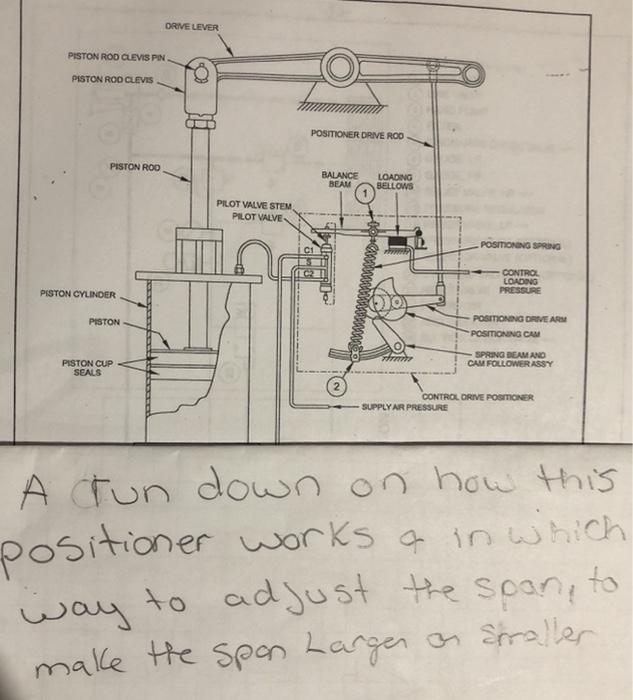 DRIVE LEVER
PISTON ROD CLEVIS PIN
PISTON ROD CLEVIS
POSITIONER DRIVE ROD
PISTON ROD
BALANCE
BEAM
LOADING
BELLOWS
1
PILOT VALVE STEM
PILOT VALVE
C1
S
C2
POSITIONING SPRING
CONTROL
LOADING
PRESSURE
PISTON CYLINDER
POSITIONING DRIVE ARM
PISTON
POSITIONING CAM
PISTON CUP
SEALS
SPRING BEAM AND
CAM FOLLOWER ASS'Y
2
CONTROL DRIVE POSITIONER
SUPPLY AIR PRESSURE
A run down on how this
positioner works & in which
way to adjust the span, to
make the span Larger or smaller